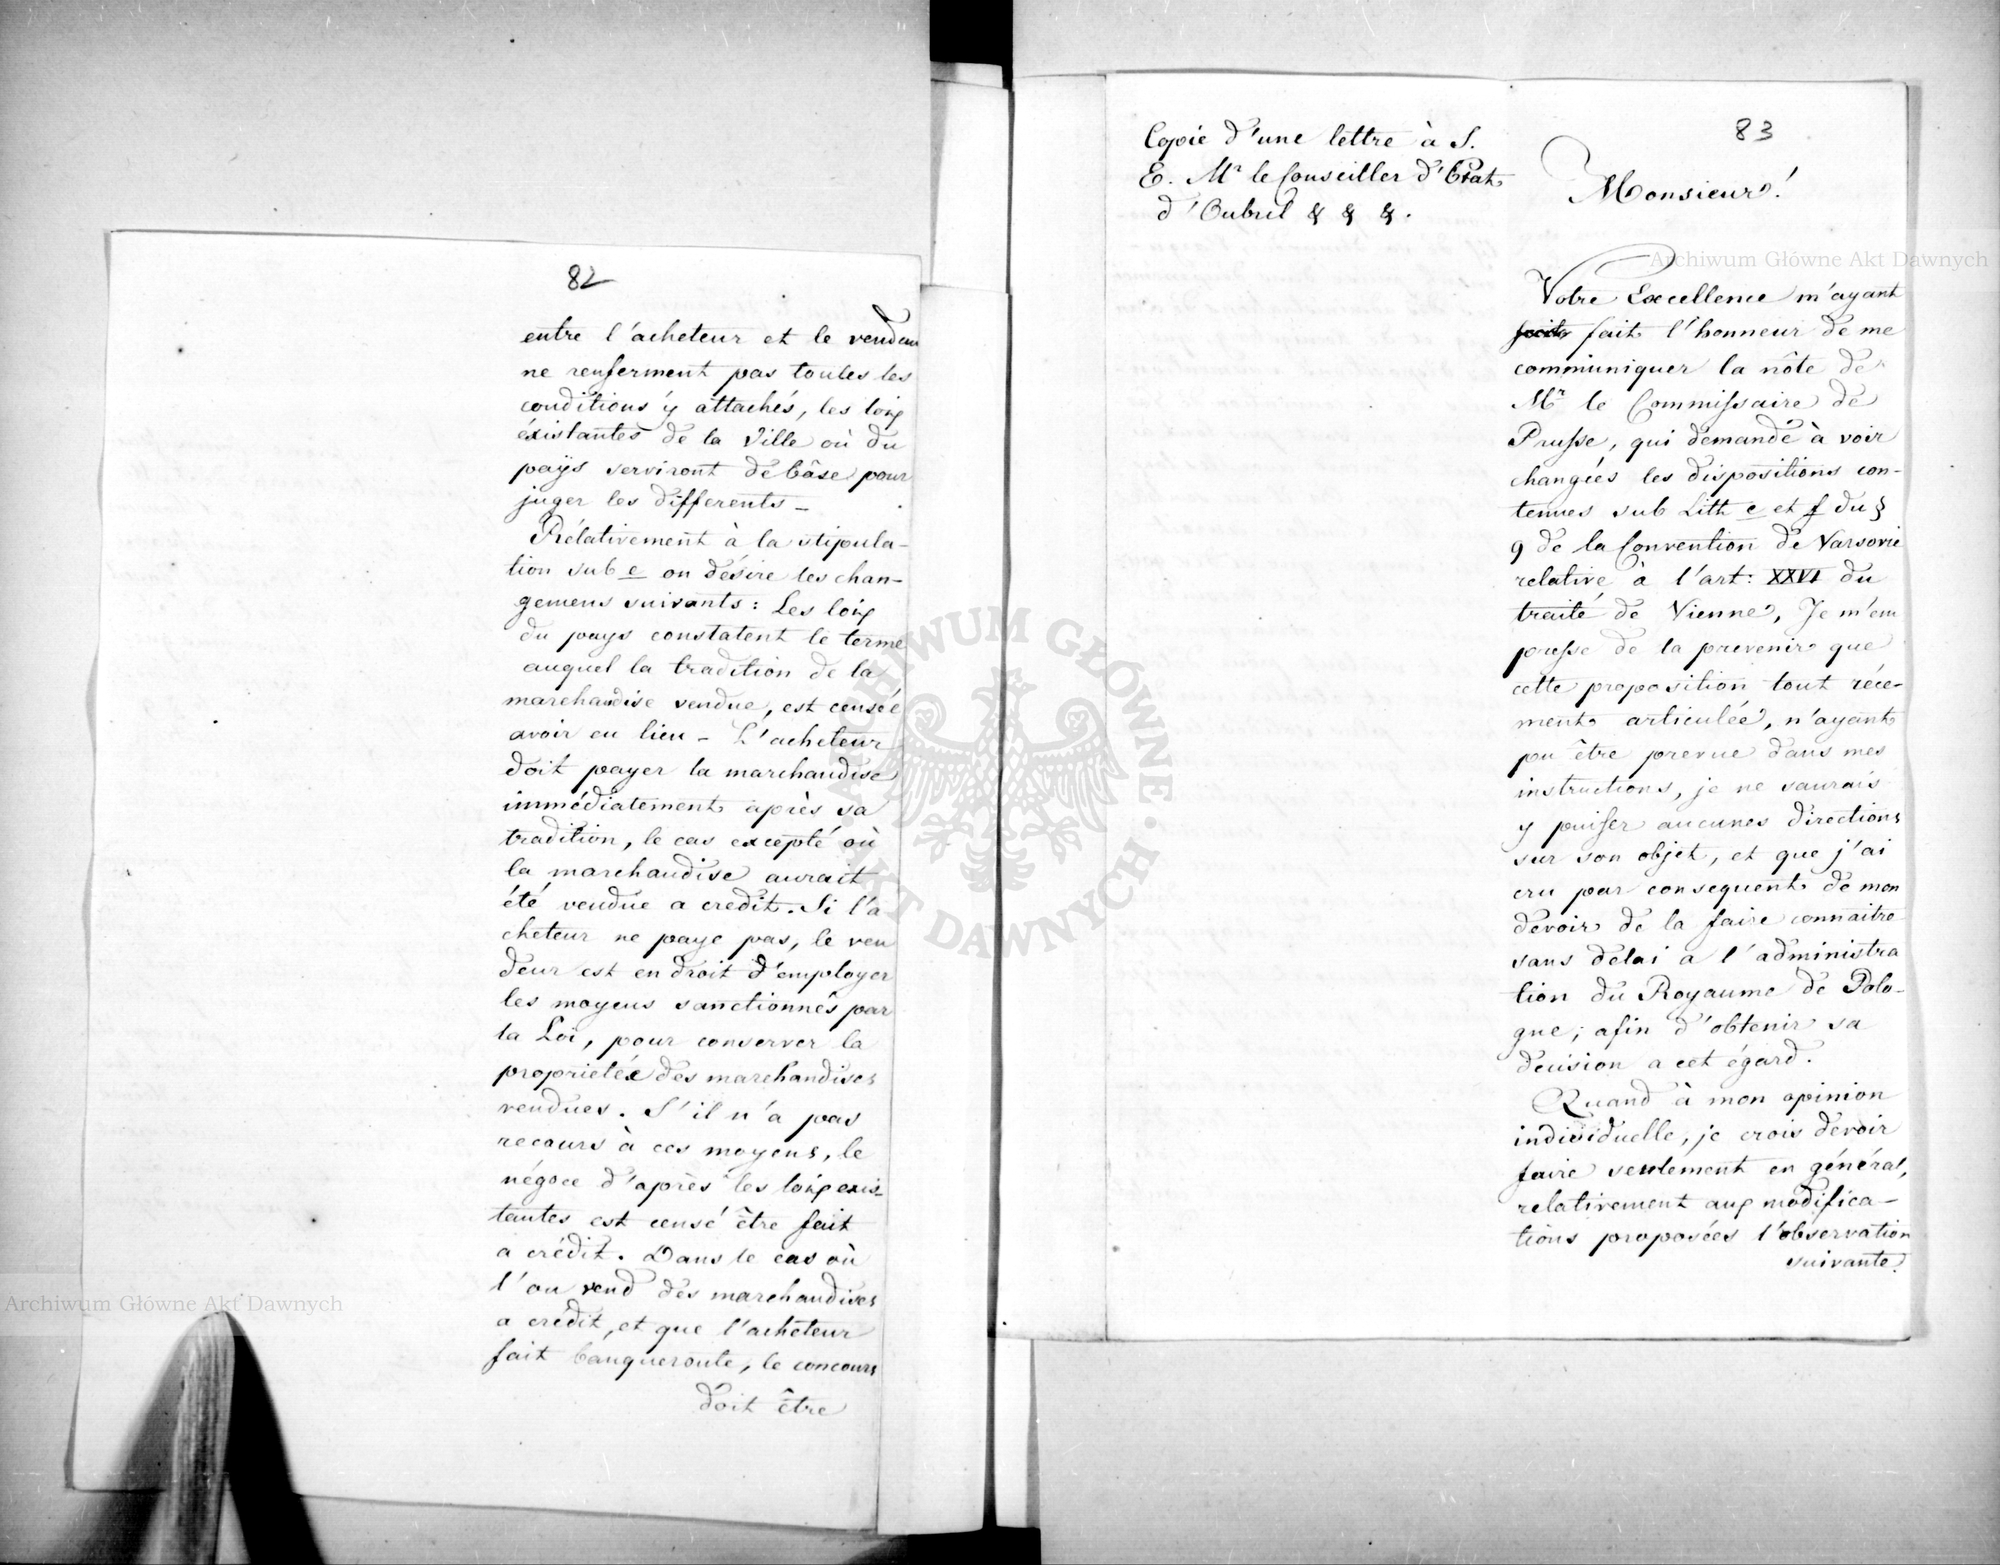 82
entre l'acheteur et le vendeur
ne renferment pas toutes les
conditions y attachés, les loix
éxistantes de la Ville où du
pays serviront de bâse pour
juger les differents –
Rélativement à la stipula-
tion sub e on désire les chan-
gemens suivants: Les loix
du pays constatent le terme
auquel la tradition de la
marchandise vendue, est censée
avoir eu lieu – L'acheteur
doit payer la marchandise
immédiatement après sa
tradition, le cas excepté où
la marchandise aurait
été vendue a credit. Si l'a
cheteur ne paye pas, le ven
deur est en droit d'employer
les moyens sanctionnés par
la Loi, pour conserver la
proprietée des marchandises
vendues. S'il n'a pas
recours à ces moyens, le
négoce d'après les loix exis-
tantes est censé être fait
a crédit. Dans le cas où
l'on vend des marchandises
a crédit, et que l'acheteur
fait banqueroute, le concours
doit être
83
Copie d'une lettre à S.
E. Mr le Conseiller d'Etat
d'Oubril & & &.
Monsieur!
Votre Excellence m'ayant
fait l'honneur de me
communiquer la nôte de
Mr le Commissaire de
Prusse, qui demande à voir
changées les dispositions con-
tenues sub Litt e et f du §
9 de la Convention de Varsovie
relative à l'art: XXVI du
traité de Vienne, Je m'em
presse de la prevenir que
cette proposition tout réce-
ment articulée, n'ayant
pu être prevue dans mes
instructions, je ne saurais
y puiser aucunes directions
sur son objet, et que j'ai
cru par consequent de mon
devoir de la faire connaitre
sans délai a l'administra
tion du Royaume de Polo-
gne; afin d'obtenir sa
decision a cet égard.
Quand à mon opinion
individuelle, je crois devoir
faire seulement en général,
relativement aux modifica-
tions proposées l'observation
suivante.
Archiwum Główne Akt Dawnych
Archiwum Główne Akt Dawnych
ARCHIWUM GŁÓWNE AKT DAWNYCH